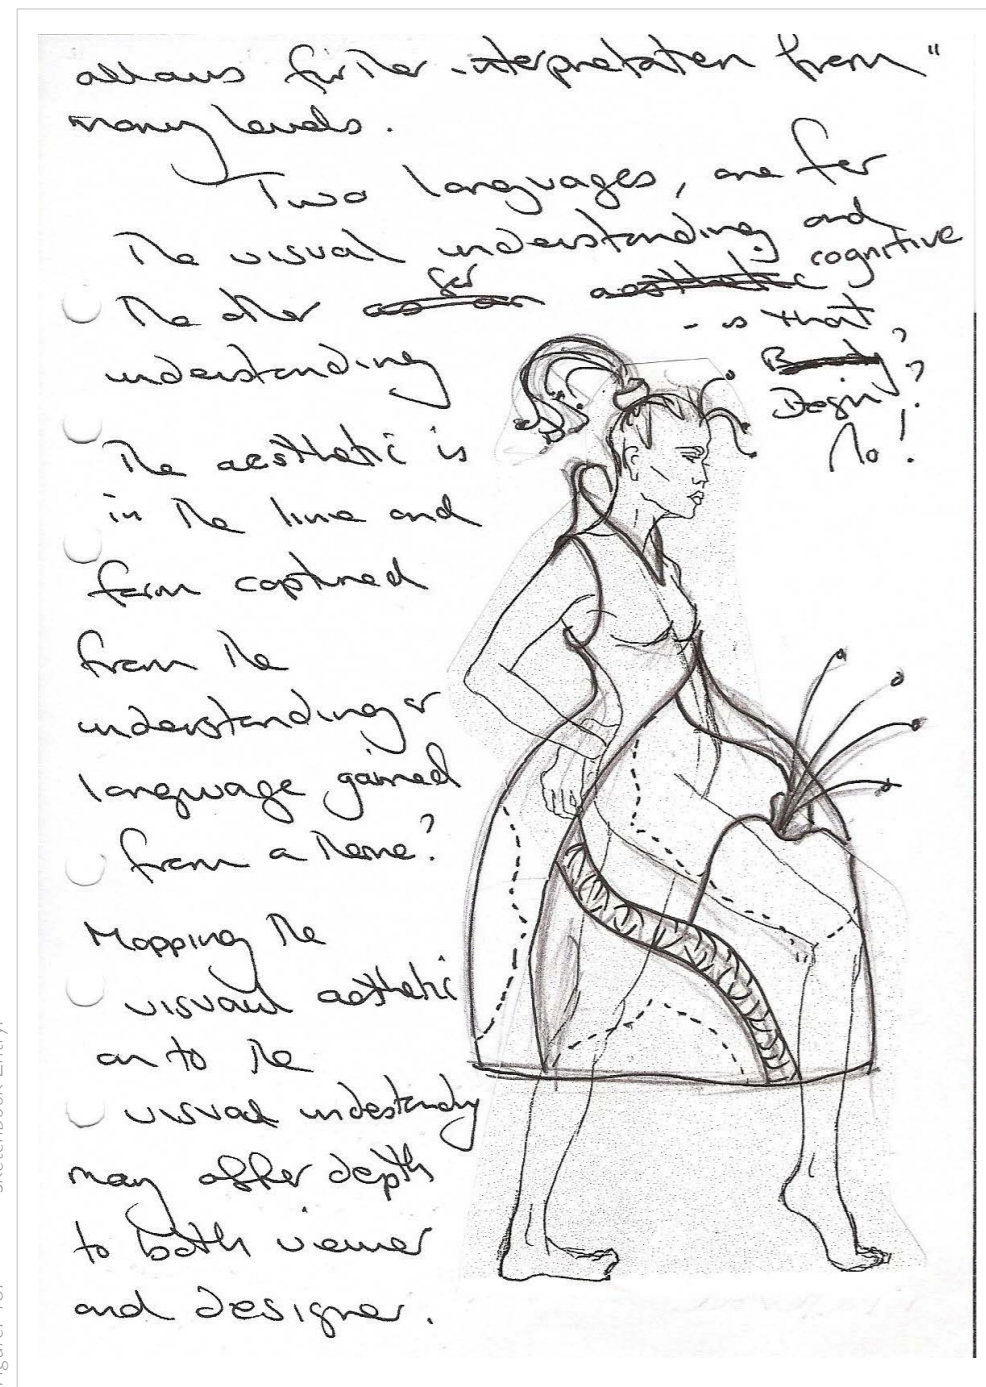 allows further interpretation from "
many levels.
Two languages, one for
The visual understanding and
The other ~~as an~~ for ~~aesthetic~~ cognitive
understanding
- is that
Design?
No!
The aesthetic is
in The line and
form captured
from The
understanding or
language gained
from a Theme?
Mapping The
visual aesthetic
on to The
visual understanding
may offer depth
to both viewer
and designer.